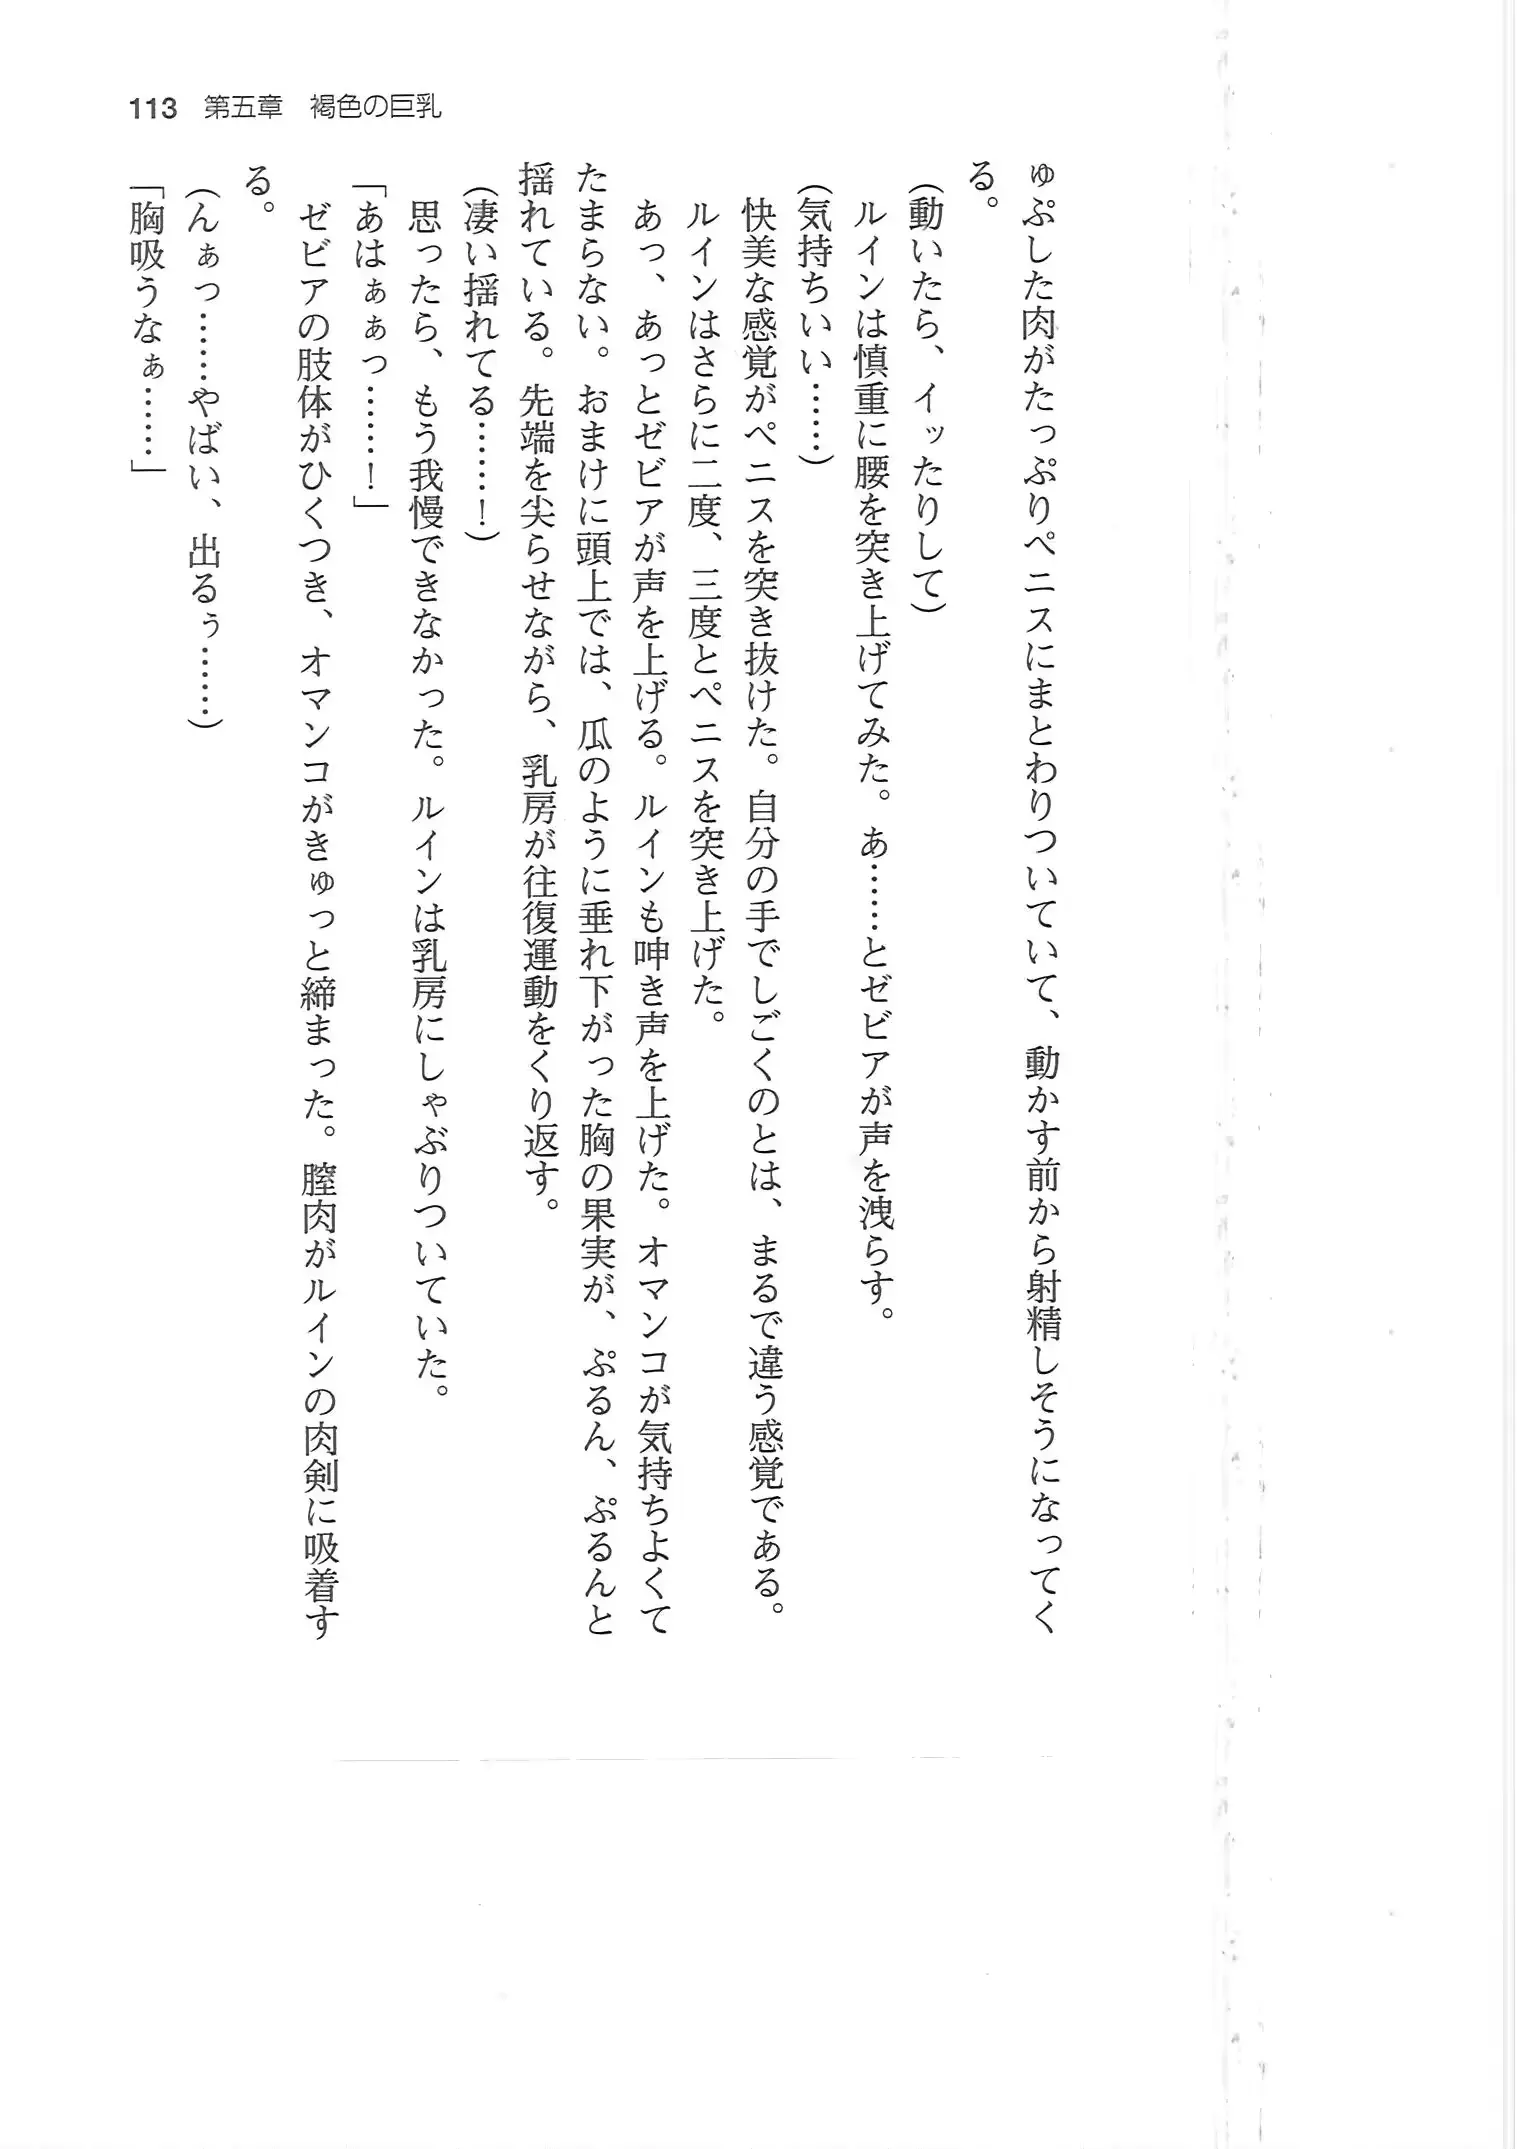 113 第五章 褐色の巨乳
ゅぷした肉がたっぷりペニスにまとわりついていて、動かす前から射精しそうになってく
る。
（動いたら、イッたりして）
ルインは慎重に腰を突き上げてみた。あ……とゼビアが声を洩らす。
（気持ちいい……）
快美な感覚がペニスを突き抜けた。自分の手でしごくのとは、まるで違う感覚である。
ルインはさらに二度、三度とペニスを突き上げた。
あっ、あっとゼビアが声を上げる。ルインも呻き声を上げた。オマンコが気持ちよくて
たまらない。おまけに頭上では、瓜のように垂れ下がった胸の果実が、ぷるん、ぷるんと
揺れている。先端を尖らせながら、乳房が往復運動をくり返す。
（凄い揺れてる……！）
思ったら、もう我慢できなかった。ルインは乳房にしゃぶりついていた。
「あはぁぁっ……！」
ゼビアの肢体がひくつき、オマンコがきゅっと締まった。膣肉がルインの肉剣に吸着す
る。
（んぁっ……やばい、出るぅ……）
「胸吸うなぁ……」